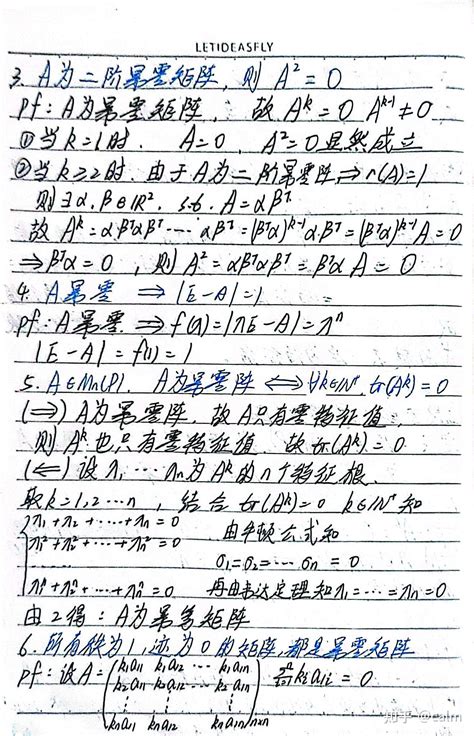 LETIDEASFLY
3. A为二阶幂零矩阵, 则 A² = 0
pf: A为幂零矩阵, 故 Aᵏ = 0 Aᵏ⁻¹ ≠ 0
①当 k=1时. A=0, A²=0显然成立
②当 k≥2时. 由于A为二阶幂零阵 ⇒ r(A)=1
则∃α.β∈ℝ². s.t. A=αβᵀ
故 Aᵏ=αβᵀαβᵀ⋯αβᵀ=(βᵀα)ᵏ⁻¹αβᵀ=(βᵀα)ᵏ⁻¹A=0
⇒βᵀα=0, 则 A²=αβᵀαβᵀ=βᵀαA=0
4. A幂零 ⇒ |E-A|=1
pf: A幂零 ⇒ f(λ)=|λE-A|=λⁿ
|E-A|=f(1)=1
5. A∈Mn(P). A为幂零阵 ⇔ ∀k∈N⁺. tr(Aᵏ)=0
(⇒) A为幂零阵. 故A只有零特征值.
则Aᵏ也只有零特征值. 故tr(Aᵏ)=0
(⇐) 设λ₁⋯λn为Aᵏ的n个特征根.
取k=1,2⋯n, 结合tr(Aᵏ)=0 k∈N⁺知
λ₁+λ₂+⋯+λn=0 由牛顿公式知
λ₁²+λ₂²+⋯+λn²=0 σ₁=σ₂=⋯σn=0
λ₁ⁿ+λ₂ⁿ+⋯+λnⁿ=0 再由韦达定理知λ₁=⋯=λn=0
由2得: A为幂零矩阵
6. 所有秩为1, 迹为0的矩阵, 都是幂零矩阵
pf: 设A=(k₁a₁₁ k₁a₁₂ ⋯ k₁a₁n
k₂a₁₁ k₂a₁₂ ⋯ k₂a₁n
⋮ ⋮ ⋮
kna₁₁ kna₁₂ kna₁n)n×n Σkᵢa₁ᵢ=0
知乎 @calm